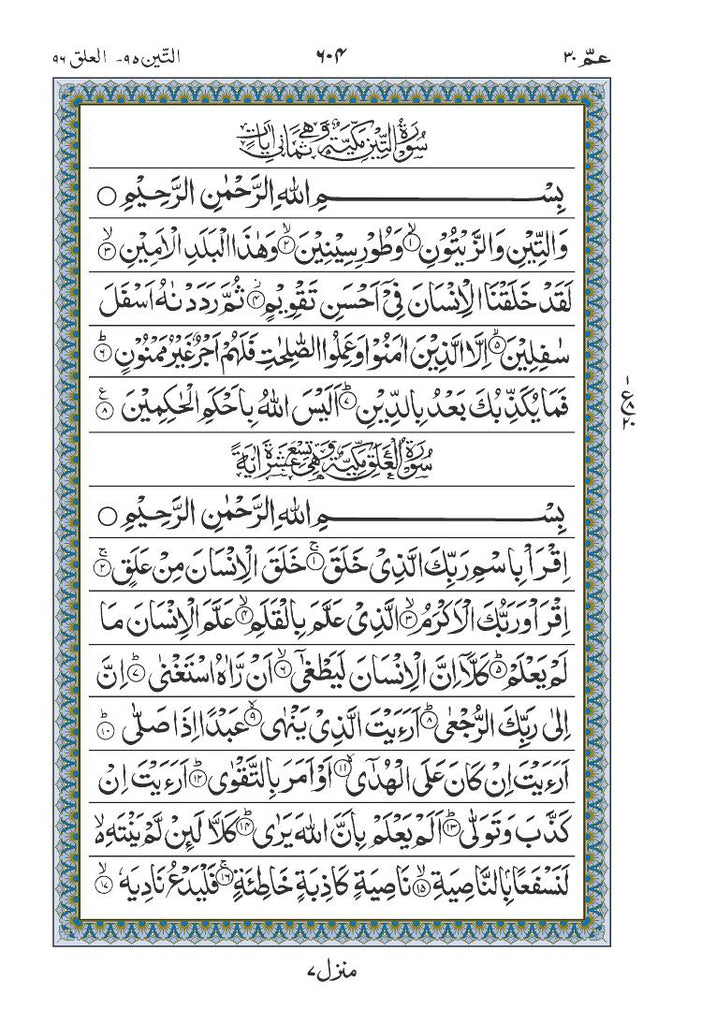 عمّ ۳۰ ۶۰۴ التّين ۹۵- العلق ۹۶
سُوْرَةُ التِّيْنِ مَكِّيَّةٌ وَّهِيَ ثَمَانِي اٰيَاتٍ
بِسْــــــــــــمِ اللهِ الرَّحْمٰنِ الرَّحِيْمِ ○
وَالتِّيْنِ وَالزَّيْتُوْنِ ۙ﴿۱﴾ وَطُوْرِ سِيْنِيْنَ ۙ﴿۲﴾ وَهٰذَا الْبَلَدِ الْاَمِيْنِ ۙ﴿۳﴾
لَقَدْ خَلَقْنَا الْاِنْسَانَ فِيْۤ اَحْسَنِ تَقْوِيْمٍ ۫﴿۴﴾ ثُمَّ رَدَدْنٰهُ اَسْفَلَ
سٰفِلِيْنَ ۙ﴿۵﴾ اِلَّا الَّذِيْنَ اٰمَنُوْا وَعَمِلُوا الصّٰلِحٰتِ فَلَهُمْ اَجْرٌ غَيْرُ مَمْنُوْنٍ ؕ﴿۶﴾
فَمَا يُكَذِّبُكَ بَعْدُ بِالدِّيْنِ ؕ﴿۷﴾ اَلَيْسَ اللهُ بِاَحْكَمِ الْحٰكِمِيْنَ ﴿۸﴾ ع
سُوْرَةُ الْعَلَقِ مَكِّيَّةٌ وَّهِيَ تِسْعَ عَشْرَةَ اٰيَةً
بِسْــــــــــــمِ اللهِ الرَّحْمٰنِ الرَّحِيْمِ ○
اِقْرَاْ بِاسْمِ رَبِّكَ الَّذِيْ خَلَقَ ۚ﴿۱﴾ خَلَقَ الْاِنْسَانَ مِنْ عَلَقٍ ۚ﴿۲﴾
اِقْرَاْ وَرَبُّكَ الْاَكْرَمُ ۙ﴿۳﴾ الَّذِيْ عَلَّمَ بِالْقَلَمِ ۙ﴿۴﴾ عَلَّمَ الْاِنْسَانَ مَا
لَمْ يَعْلَمْ ؕ﴿۵﴾ كَلَّاۤ اِنَّ الْاِنْسَانَ لَيَطْغٰۤى ۙ﴿۶﴾ اَنْ رَّاٰهُ اسْتَغْنٰى ؕ﴿۷﴾ اِنَّ
اِلٰى رَبِّكَ الرُّجْعٰى ؕ﴿۸﴾ اَرَءَيْتَ الَّذِيْ يَنْهٰى ۙ﴿۹﴾ عَبْدًا اِذَا صَلّٰى ؕ﴿۱۰﴾
اَرَءَيْتَ اِنْ كَانَ عَلَى الْهُدٰۤى ۙ﴿۱۱﴾ اَوْ اَمَرَ بِالتَّقْوٰى ؕ﴿۱۲﴾ اَرَءَيْتَ اِنْ
كَذَّبَ وَتَوَلّٰى ؕ﴿۱۳﴾ اَلَمْ يَعْلَمْ بِاَنَّ اللهَ يَرٰى ؕ﴿۱۴﴾ كَلَّا لَئِنْ لَّمْ يَنْتَهِ ۙ۬
لَنَسْفَعًۢا بِالنَّاصِيَةِ ۙ﴿۱۵﴾ نَاصِيَةٍ كَاذِبَةٍ خَاطِئَةٍ ۚ﴿۱۶﴾ فَلْيَدْعُ نَادِيَهٗ ۙ﴿۱۷﴾
منزل ۷